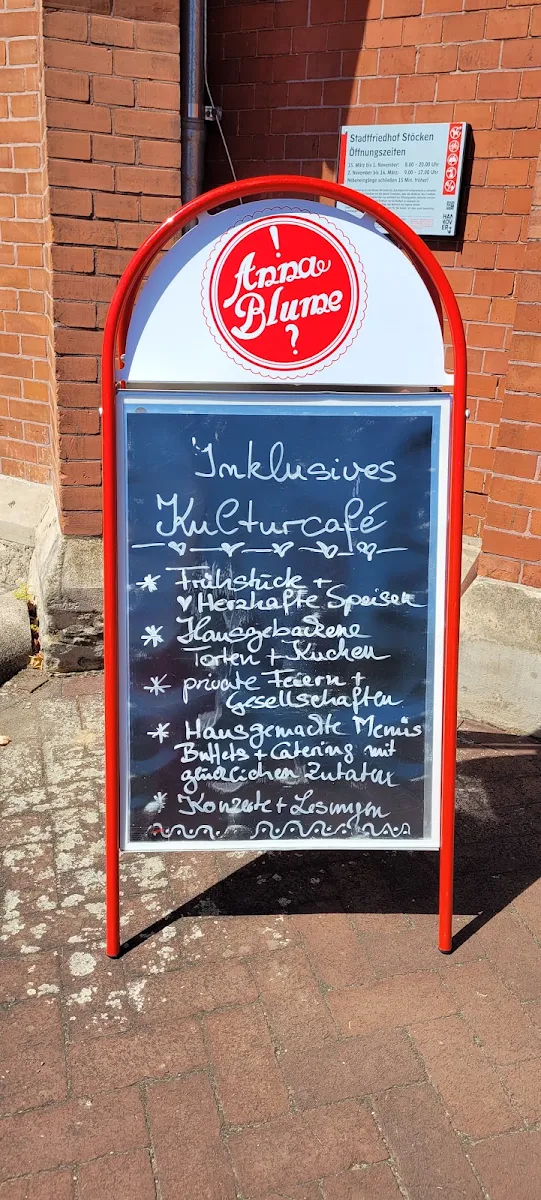 Stadtfriedhof Stöcken
Öffnungszeiten
15. März bis 1. November: 8.00 - 20.00 Uhr
2. November bis 14. März: 9.00 - 17.00 Uhr
Nebeneingänge schließen 15 Min. früher!
HAN
NOV
ER
!
Anna
Blume
?
Inklusives
Kulturcafé
* Frühstück +
♥ Herzhafte Speisen
* Hausgebackene
Torten + Kuchen
* private Feiern +
Gesellschaften
* Hausgemachte Menüs
Buffets + Catering mit
Zutaten
* Konzerte + Lesungen